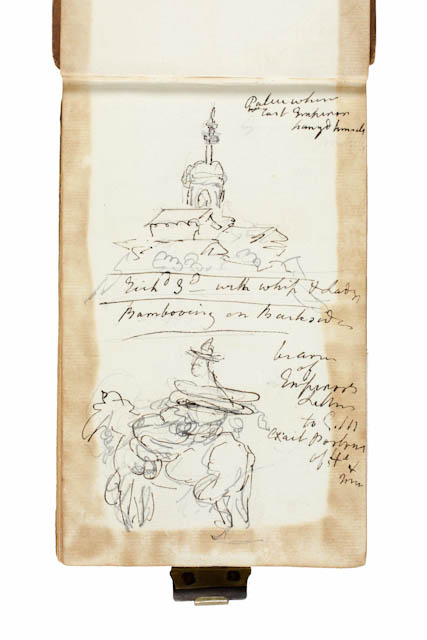 Palace where
last Emperor
hang'd himself
Rich'd 3d with whip & Lady
Bambooing on Backside
bearer
of
Emperors
Letter
to G. III
exact Portrait
of He &